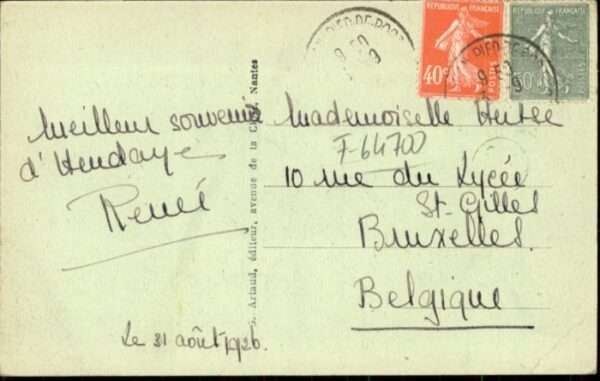 Meilleur souvenir
d'Hendaye
René
Le 31 août 1926.
S. Artaud, éditeur, avenue de la Nantes
RÉPUBLIQUE FRANÇAISE
40c
POSTES
RÉPUBLIQUE FRANÇAISE
50c
Mademoiselle
F-64700
10 rue du Lycée
St-Gilles
Bruxelles.
Belgique